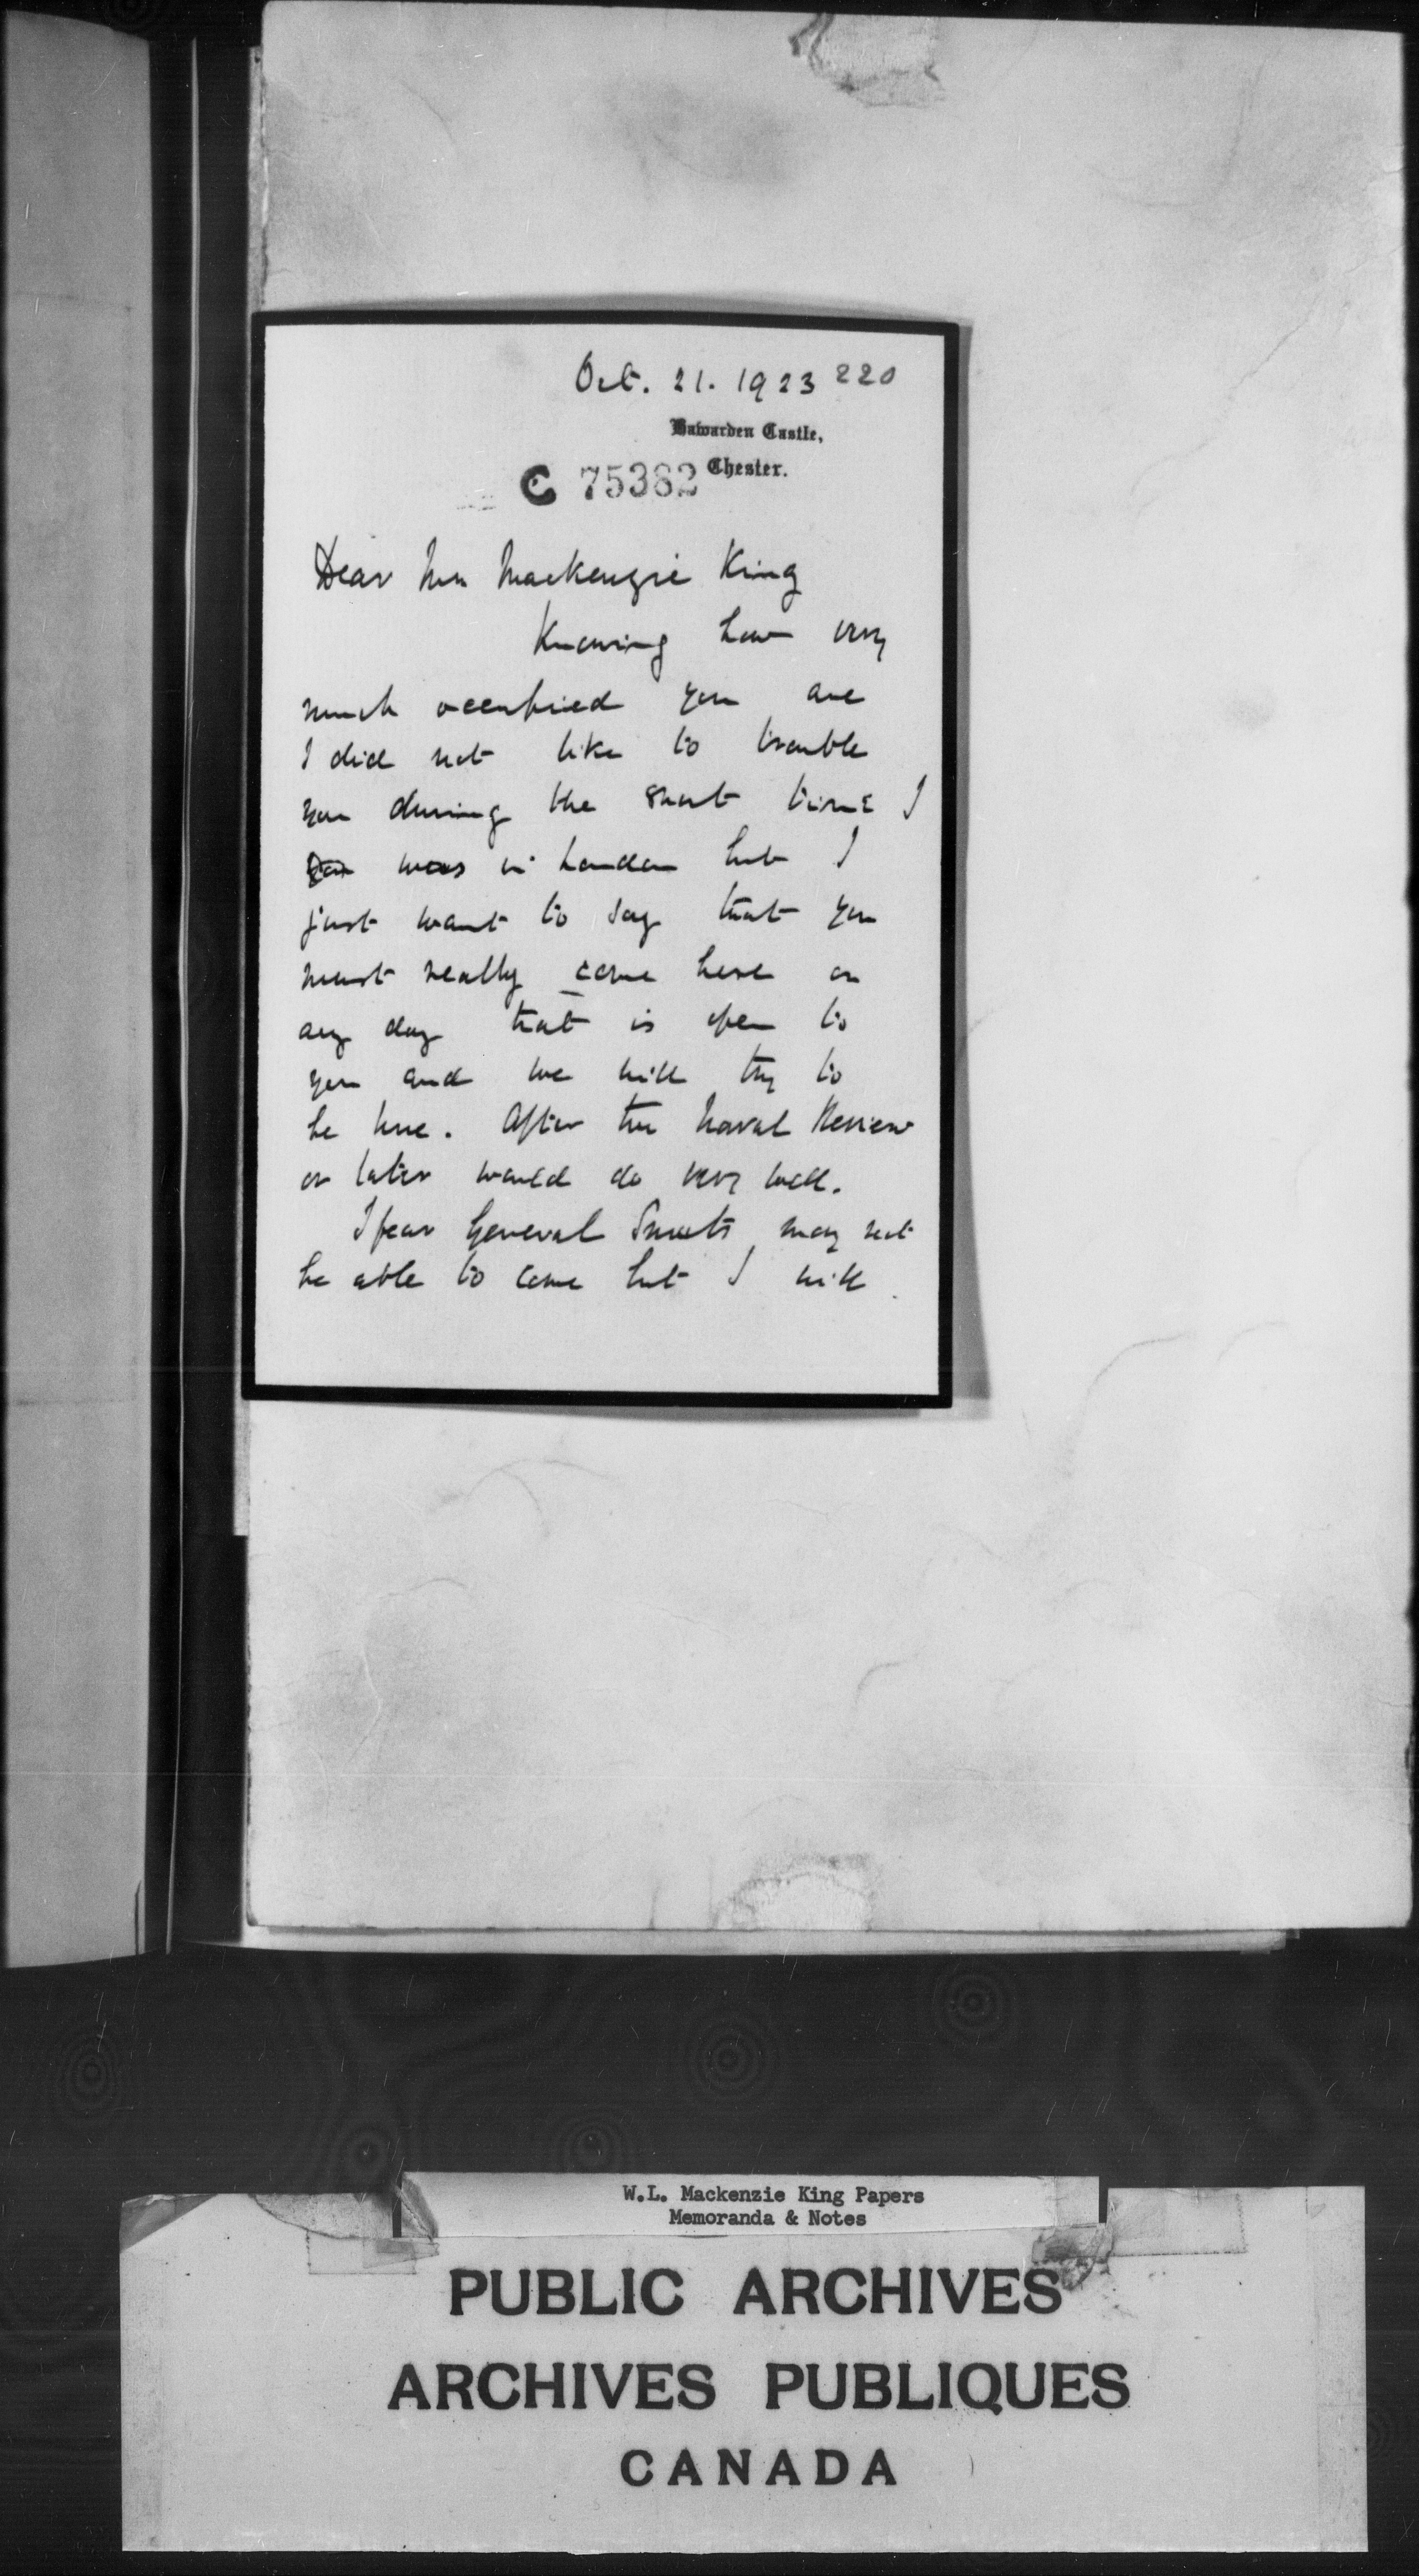 Oct. 21. 1923 220
Hawarden Castle,
Chester.
C 75382
Dear Mr Mackenzie King
Knowing how very
much occupied you are
I did not like to trouble
you during the short time I
was in London but I
just want to say that you
must really come here on
any day that is open to
you and we will try to
be here. After the Naval Review
or later would do very well.
I fear General Smuts may not
be able to come but I will
W.L. Mackenzie King Papers
Memoranda & Notes
PUBLIC ARCHIVES
ARCHIVES PUBLIQUES
CANADA